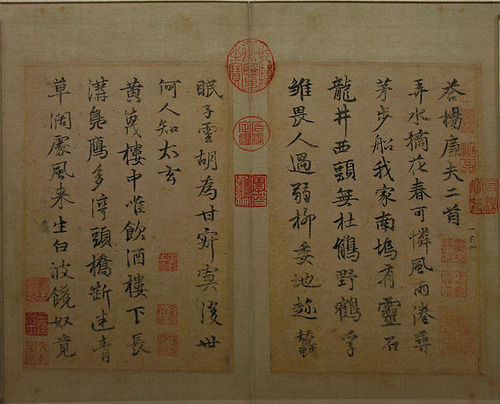 答楊廉夫二首
弄水摘花春可憐風雨尋
茅步船我家南塢有靈石
龍井西頭無杜鵑野鶴孚
雛畏人過弱柳委地趂蠶
眠子雲胡為甘寂寞後世
何人知太玄
黃樓中惟飲酒樓下長
溝鳧鴈多渟頭橋斷迷青
草闊處風来生白波饒奴竟